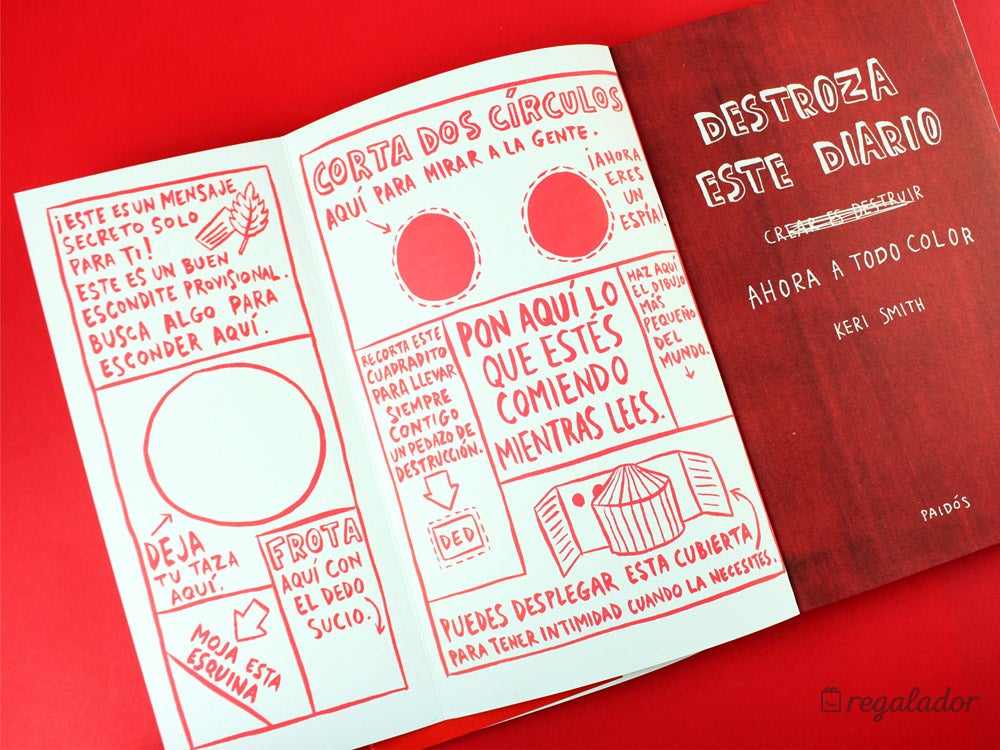 ¡ESTE ES UN MENSAJE
SECRETO SOLO
PARA TI!
ESTE ES UN BUEN
ESCONDITE PROVISIONAL.
BUSCA ALGO PARA
ESCONDER AQUÍ.
DEJA
TU TAZA
AQUÍ.
FROTA
AQUÍ CON
EL DEDO
SUCIO.
MOJA ESTA
ESQUINA
CORTA DOS CÍRCULOS
AQUÍ PARA MIRAR A LA GENTE.
¡AHORA
ERES
UN
ESPÍA!
RECORTA ESTE
CUADRADITO
PARA LLEVAR
SIEMPRE
CONTIGO
UN PEDAZO DE
DESTRUCCIÓN.
DED
PON AQUÍ LO
QUE ESTÉS
COMIENDO
MIENTRAS LEES.
HAZ AQUÍ
EL DIBUJO
MÁS
PEQUEÑO
DEL
MUNDO.
PUEDES DESPLEGAR ESTA CUBIERTA
PARA TENER INTIMIDAD CUANDO LA NECESITES.
DESTROZA
ESTE DIARIO
CREAR ES DESTRUIR
AHORA A TODO COLOR
KERI SMITH
PAIDÓS
regalador